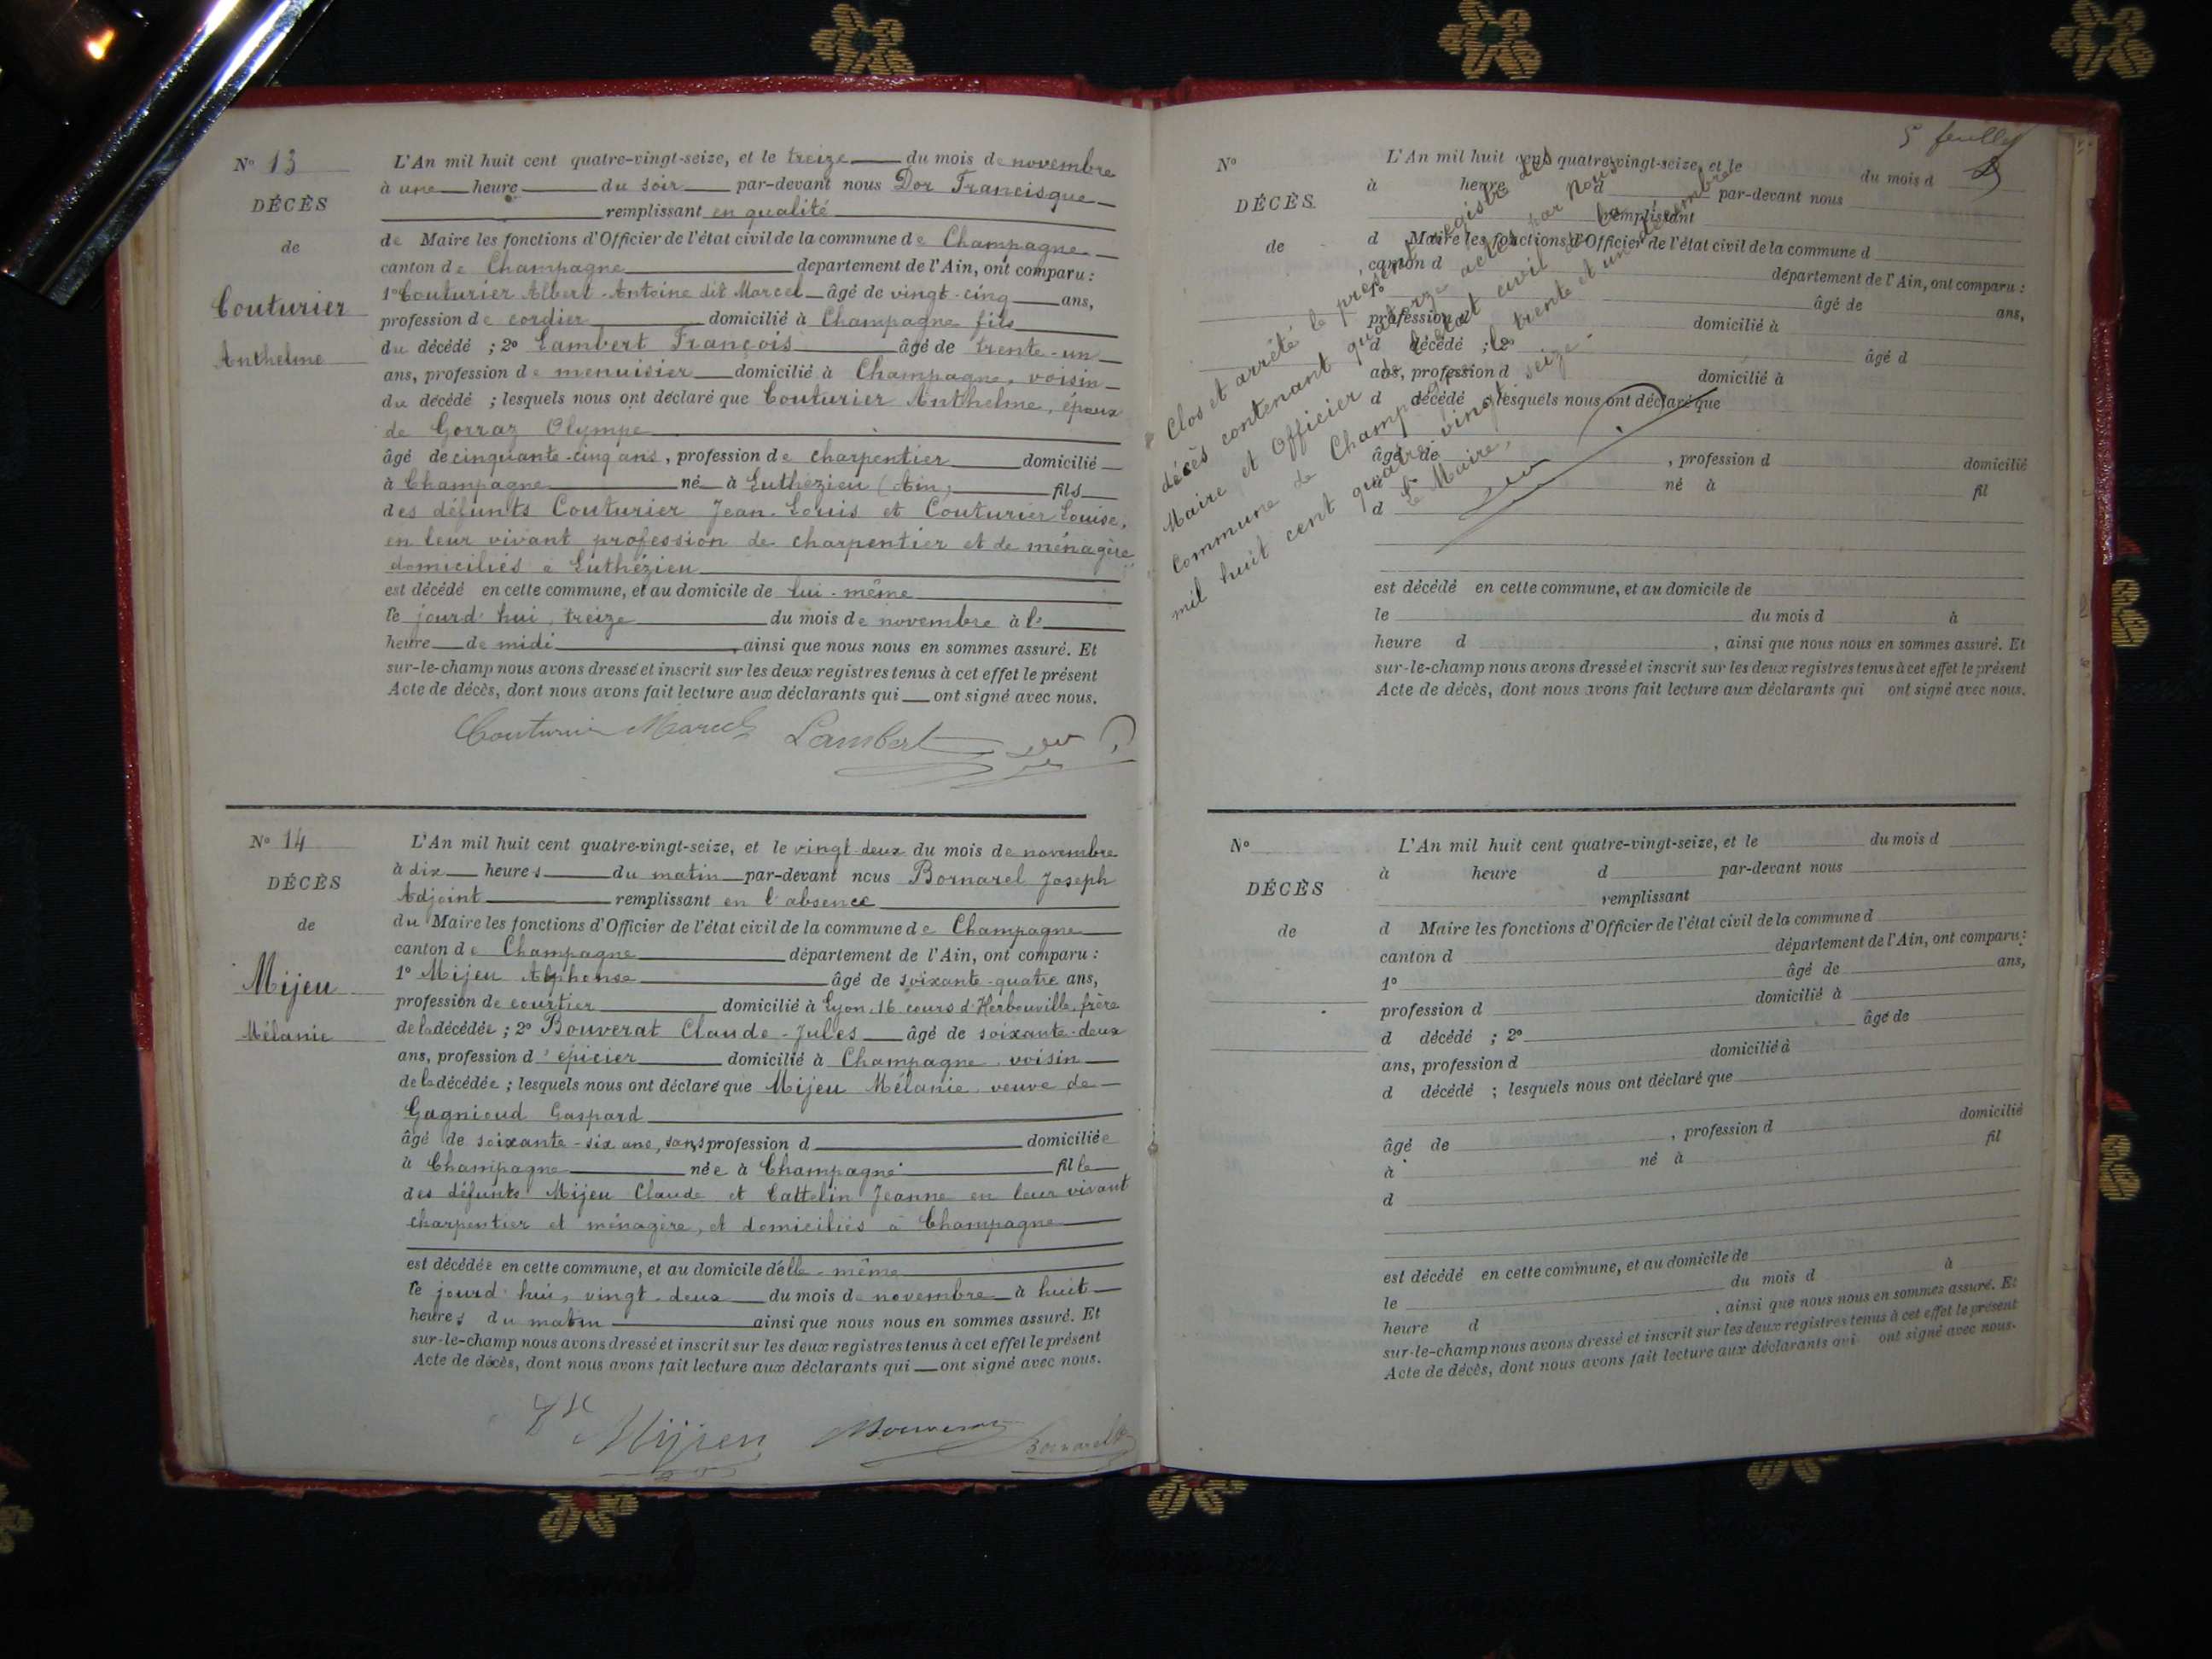 N° 13
DÉCÈS
de
Couturier
Anthelme
L'An mil huit cent quatre-vingt-seize, et le treize du mois de novembre
à une heure du soir par-devant nous Dor Francisque
remplissant en qualité
de Maire les fonctions d'Officier de l'état civil de la commune de Champagne
canton de Champagne département de l'Ain, ont comparu :
1° Couturier Albert-Antoine dit Marcel âgé de vingt-cinq ans,
profession de cordier domicilié à Champagne fils
du décédé ; 2° Lambert François âgé de trente-un
ans, profession de menuisier domicilié à Champagne, voisin
du décédé ; lesquels nous ont déclaré que Couturier Anthelme, époux
de Gorraz Olympe
âgé de cinquante-cinq ans, profession de charpentier domicilié
à Champagne né à Luthézieu (Ain) fils
des défunts Couturier Jean-Louis et Couturier Louise,
en leur vivant profession de charpentier et de ménagère
domiciliés à Luthézieu
est décédé en cette commune, et au domicile de lui-même
le jourd'hui, treize du mois de novembre à l'
heure de midi, ainsi que nous nous en sommes assuré. Et
sur-le-champ nous avons dressé et inscrit sur les deux registres tenus à cet effet le présent
Acte de décès, dont nous avons fait lecture aux déclarants qui ont signé avec nous.
Couturier Marcel Lambert
N° 14
DÉCÈS
de
Mijeu
Mélanie
L'An mil huit cent quatre-vingt-seize, et le vingt-deux du mois de novembre
à dix heures du matin par-devant nous Bornarel Joseph
Adjoint remplissant en l'absence
du Maire les fonctions d'Officier de l'état civil de la commune de Champagne
canton de Champagne département de l'Ain, ont comparu :
1° Mijeu Alphonse âgé de soixante-quatre ans,
profession de courtier domicilié à Lyon, 16 cours d'Herbouville, frère
de la décédée ; 2° Bouverat Claude-Jules âgé de soixante-deux
ans, profession d'épicier domicilié à Champagne, voisin
de la décédée ; lesquels nous ont déclaré que Mijeu Mélanie, veuve de
Gagnioud Gaspard
âgé de soixante-six ans, sans profession d domiciliée
à Champagne née à Champagne fille
des défunts Mijeu Claude et Cattelin Jeanne en leur vivant
charpentier et ménagère, et domiciliés à Champagne
est décédée en cette commune, et au domicile d'elle-même
le jourd'hui, vingt-deux du mois de novembre à huit
heures du matin ainsi que nous nous en sommes assuré. Et
sur-le-champ nous avons dressé et inscrit sur les deux registres tenus à cet effet le présent
Acte de décès, dont nous avons fait lecture aux déclarants qui ont signé avec nous.
Mijeu Bouverat Bornarel
5e feuillet
N°
DÉCÈS
de
L'An mil huit cent quatre-vingt-seize, et le du mois d
à heure d par-devant nous
remplissant
d Maire les fonctions d'Officier de l'état civil de la commune d
canton d département de l'Ain, ont comparu :
1° âgé de ans,
profession d domicilié à
d décédé ; 2° âgé d
ans, profession d domicilié à
d décédé lesquels nous ont déclaré que
âgé de , profession d domicilié
à né à fil
d
est décédé en cette commune, et au domicile de
le du mois d à
heure d , ainsi que nous nous en sommes assuré. Et
sur-le-champ nous avons dressé et inscrit sur les deux registres tenus à cet effet le présent
Acte de décès, dont nous avons fait lecture aux déclarants qui ont signé avec nous.
Clos et arrêté le présent registre des
décès contenant quatorze actes par Nous
Maire et Officier de l'état civil de la
commune de Champagne le trente et un décembre
mil huit cent quatre-vingt-seize.
Le Maire,
N°
DÉCÈS
de
L'An mil huit cent quatre-vingt-seize, et le du mois d
à heure d par-devant nous
remplissant
d Maire les fonctions d'Officier de l'état civil de la commune d
canton d département de l'Ain, ont comparu :
1° âgé de ans,
profession d domicilié à
d décédé ; 2° âgé de
ans, profession d domicilié à
d décédé ; lesquels nous ont déclaré que
âgé de , profession d domicilié
à né à fil
d
est décédé en cette commune, et au domicile de
le du mois d à
heure d , ainsi que nous nous en sommes assuré. Et
sur-le-champ nous avons dressé et inscrit sur les deux registres tenus à cet effet le présent
Acte de décès, dont nous avons fait lecture aux déclarants qui ont signé avec nous.